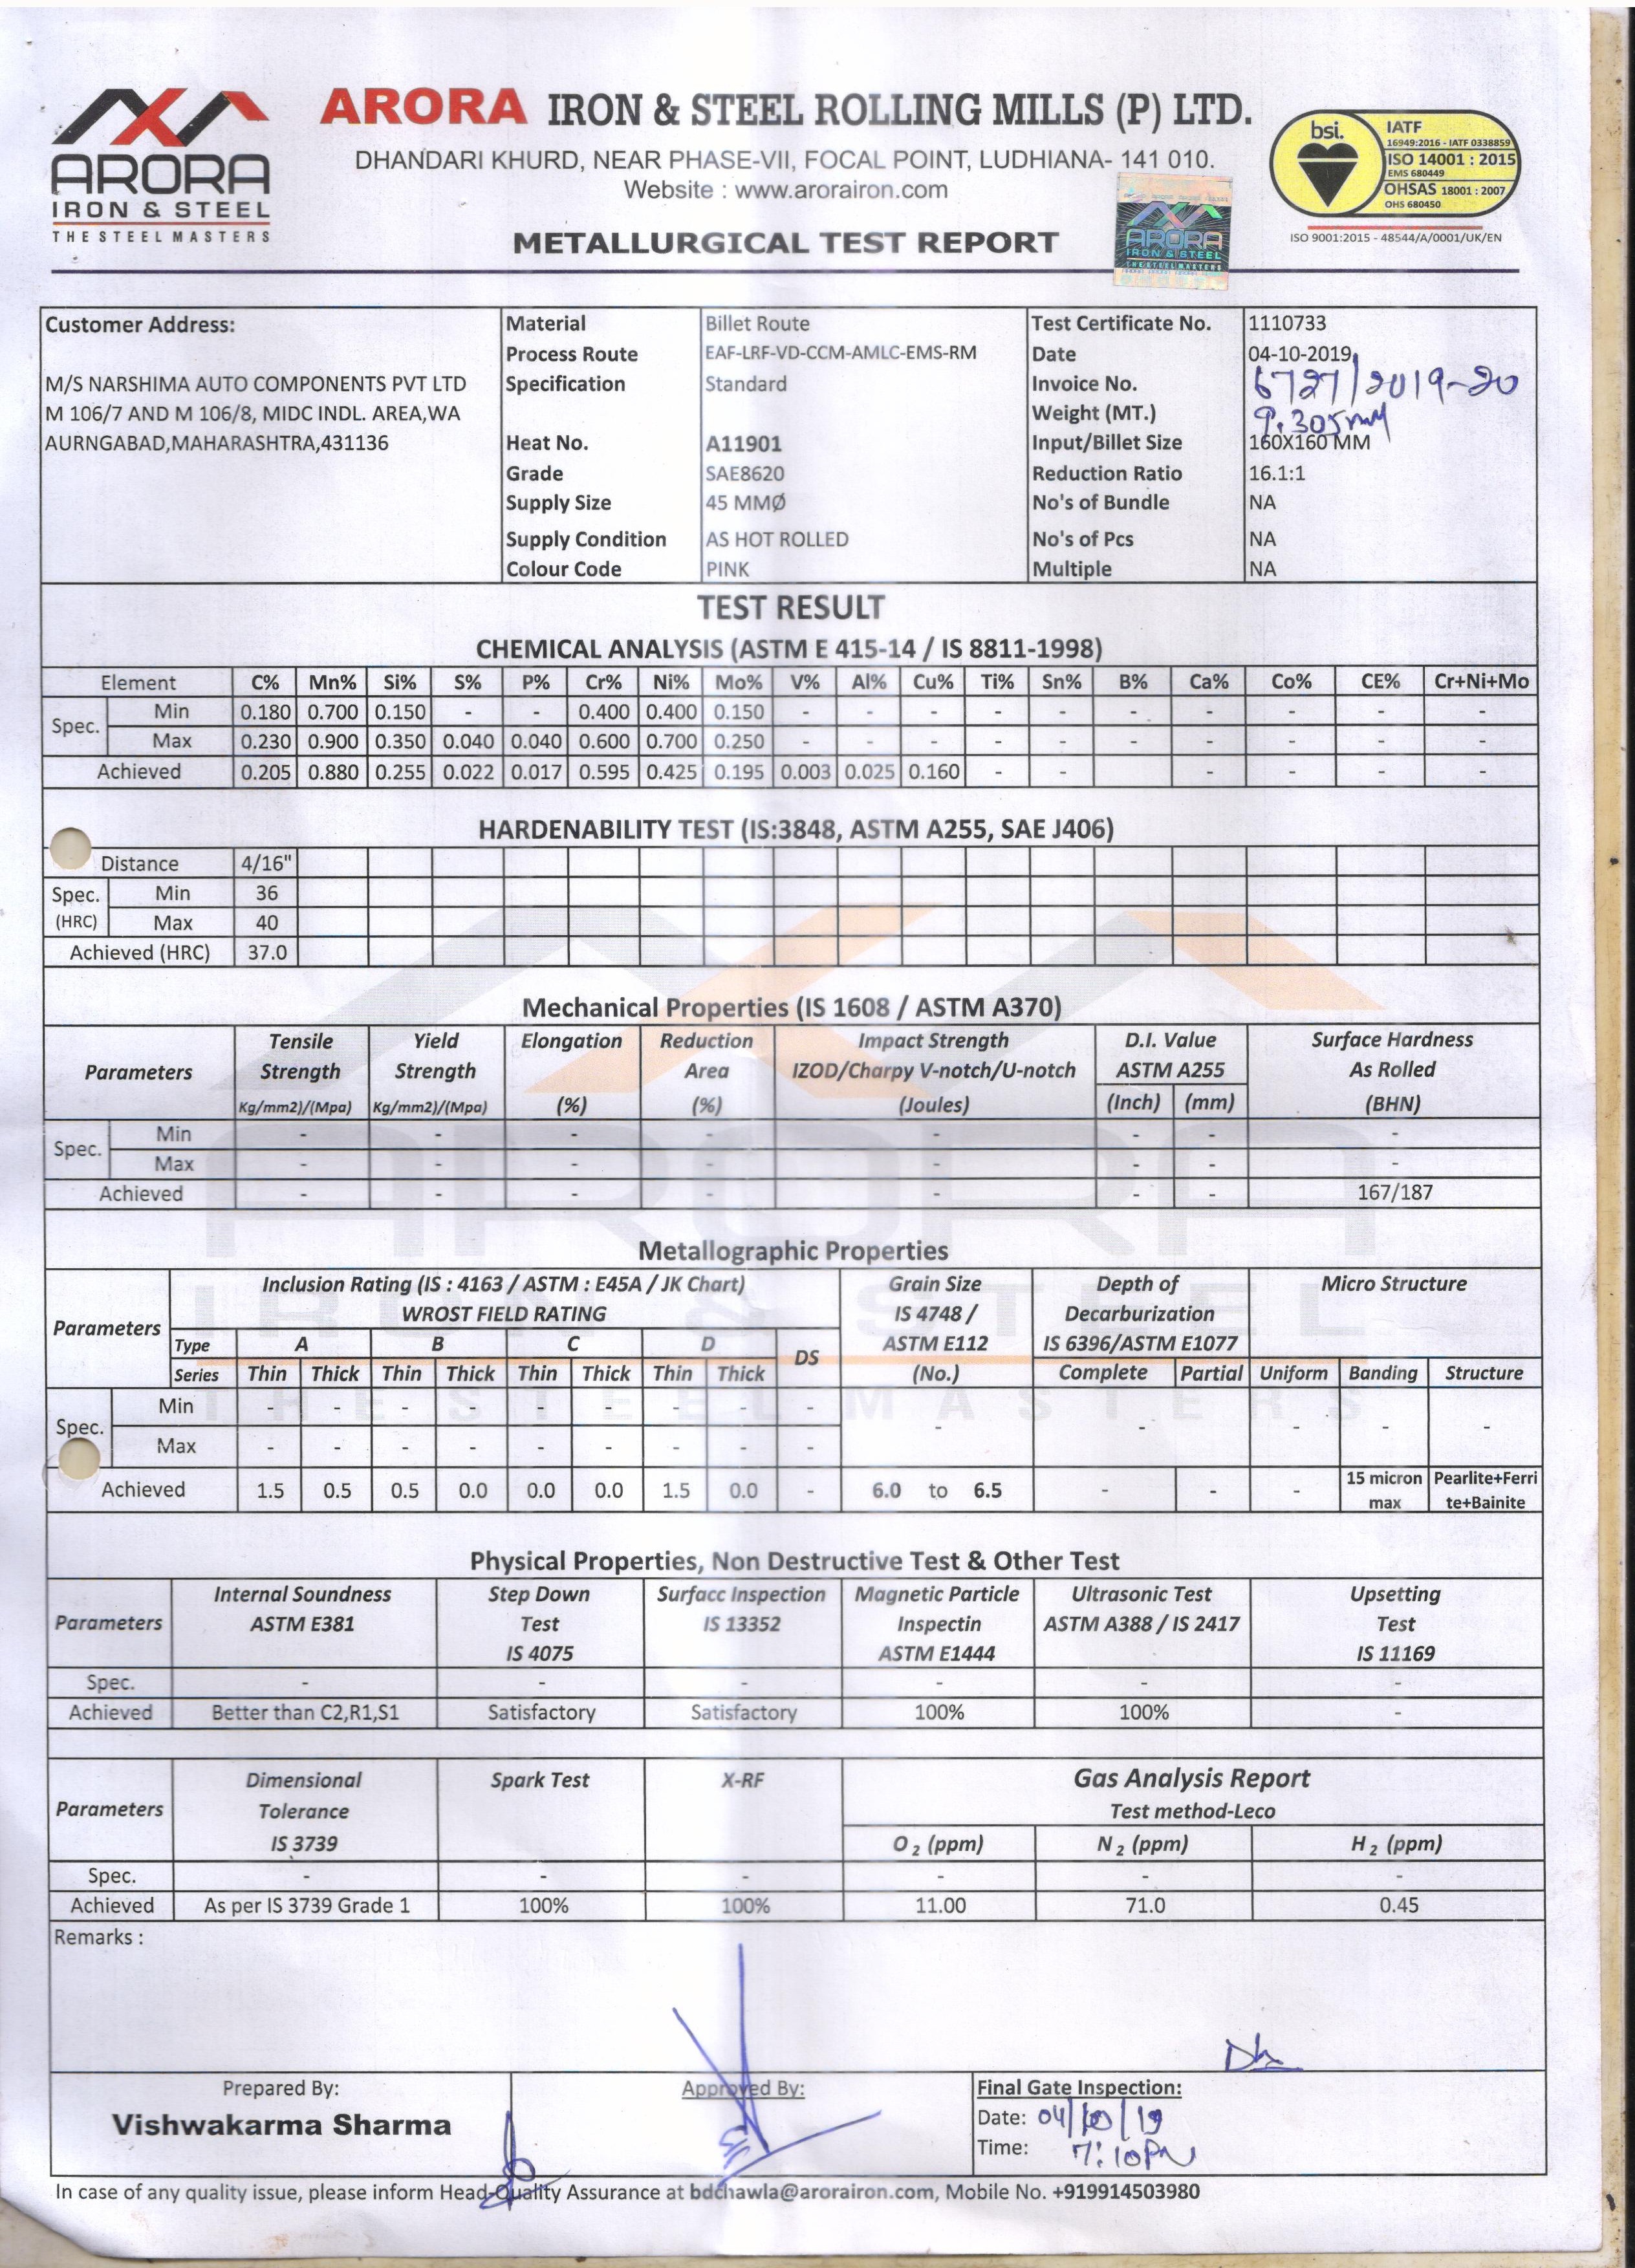 ARORA IRON & STEEL ROLLING MILLS (P) LTD.
DHANDARI KHURD, NEAR PHASE-VII, FOCAL POINT, LUDHIANA- 141 010.
Website : www.arorairon.com
METALLURGICAL TEST REPORT
ARORA
IRON & STEEL
THE STEEL MASTERS
ARORA
IRON & STEEL
THE STEEL MASTERS
bsi.
IATF
16949:2016 - IATF 0338859
ISO 14001 : 2015
EMS 680449
OHSAS 18001 : 2007
OHS 680450
ISO 9001:2015 - 48544/A/0001/UK/EN
Customer Address:
M/S NARSHIMA AUTO COMPONENTS PVT LTD
M 106/7 AND M 106/8, MIDC INDL. AREA,WA
AURNGABAD,MAHARASHTRA,431136
Material Billet Route
Process Route EAF-LRF-VD-CCM-AMLC-EMS-RM
Specification Standard
Heat No. A11901
Grade SAE8620
Supply Size 45 MMØ
Supply Condition AS HOT ROLLED
Colour Code PINK
Test Certificate No. 1110733
Date 04-10-2019
Invoice No. 6727/2019-20
Weight (MT.) 9.305
Input/Billet Size 160X160 MM
Reduction Ratio 16.1:1
No's of Bundle NA
No's of Pcs NA
Multiple NA
TEST RESULT
CHEMICAL ANALYSIS (ASTM E 415-14 / IS 8811-1998)
Element C% Mn% Si% S% P% Cr% Ni% Mo% V% Al% Cu% Ti% Sn% B% Ca% Co% CE% Cr+Ni+Mo
Spec. Min 0.180 0.700 0.150 - - 0.400 0.400 0.150 - - - - - - - - - -
Max 0.230 0.900 0.350 0.040 0.040 0.600 0.700 0.250 - - - - - - - - - -
Achieved 0.205 0.880 0.255 0.022 0.017 0.595 0.425 0.195 0.003 0.025 0.160 - - - - - -
HARDENABILITY TEST (IS:3848, ASTM A255, SAE J406)
Distance 4/16"
Spec. (HRC) Min 36
Max 40
Achieved (HRC) 37.0
Mechanical Properties (IS 1608 / ASTM A370)
Parameters
Tensile Strength Kg/mm2)/(Mpa)
Yield Strength Kg/mm2)/(Mpa)
Elongation (%)
Reduction Area (%)
Impact Strength IZOD/Charpy V-notch/U-notch (Joules)
D.I. Value ASTM A255 (Inch) (mm)
Surface Hardness As Rolled (BHN)
Spec. Min - - - - - - - -
Max - - - - - - - -
Achieved - - - - - - - 167/187
Metallographic Properties
Parameters
Inclusion Rating (IS : 4163 / ASTM : E45A / JK Chart)
WROST FIELD RATING
Type A B C D DS
Series Thin Thick Thin Thick Thin Thick Thin Thick
Grain Size IS 4748 / ASTM E112 (No.)
Depth of Decarburization IS 6396/ASTM E1077
Complete Partial
Micro Structure
Uniform Banding Structure
Spec. Min - - - - - - - - - - - - - -
Max - - - - - - - - -
Achieved 1.5 0.5 0.5 0.0 0.0 0.0 1.5 0.0 - 6.0 to 6.5 - - - 15 micron max Pearlite+Ferri te+Bainite
Physical Properties, Non Destructive Test & Other Test
Parameters
Internal Soundness ASTM E381
Step Down Test IS 4075
Surfacc Inspection IS 13352
Magnetic Particle Inspectin ASTM E1444
Ultrasonic Test ASTM A388 / IS 2417
Upsetting Test IS 11169
Spec. - - - - - -
Achieved Better than C2,R1,S1 Satisfactory Satisfactory 100% 100% -
Parameters
Dimensional Tolerance IS 3739
Spark Test
X-RF
Gas Analysis Report
Test method-Leco
O2 (ppm) N2 (ppm) H2 (ppm)
Spec. - - - - - -
Achieved As per IS 3739 Grade 1 100% 100% 11.00 71.0 0.45
Remarks :
Prepared By:
Vishwakarma Sharma
Approved By:
Final Gate Inspection:
Date: 04/10/19
Time: 7:10PM
In case of any quality issue, please inform Head-Quality Assurance at bdchawla@arorairon.com, Mobile No. +919914503980